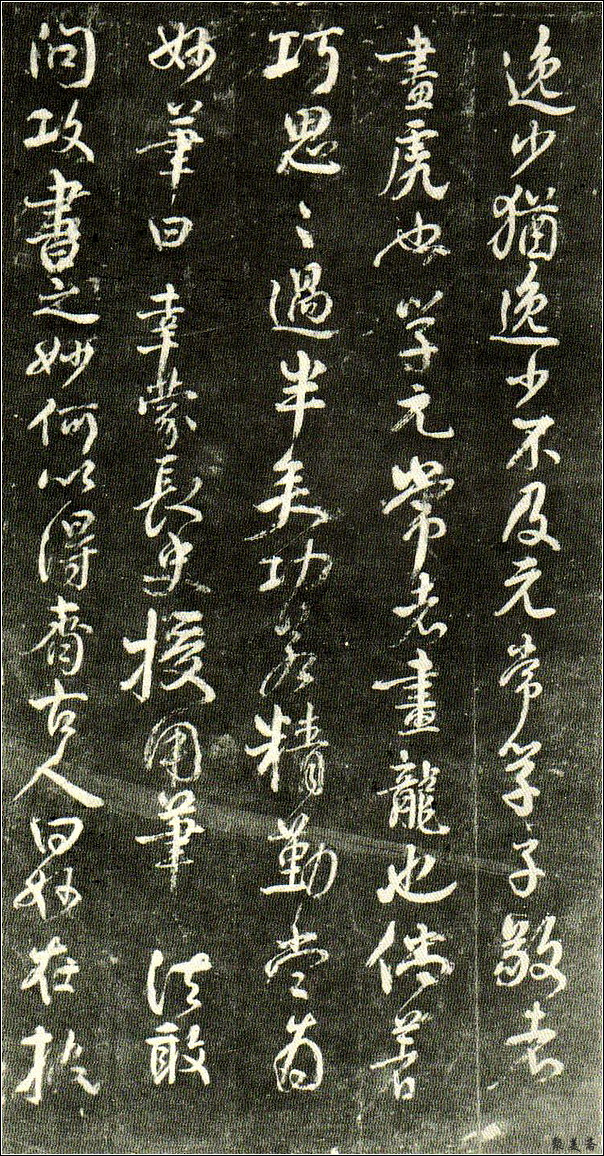 逸少猶逸少不及元常学子敬者
畫虎也学元常者畫龍也倘著
巧思〻過半矣功若精勤當為
妙筆曰幸蒙長史授用筆法敢
問攻書之妙何以得齊古人曰妙在执
聚美斋